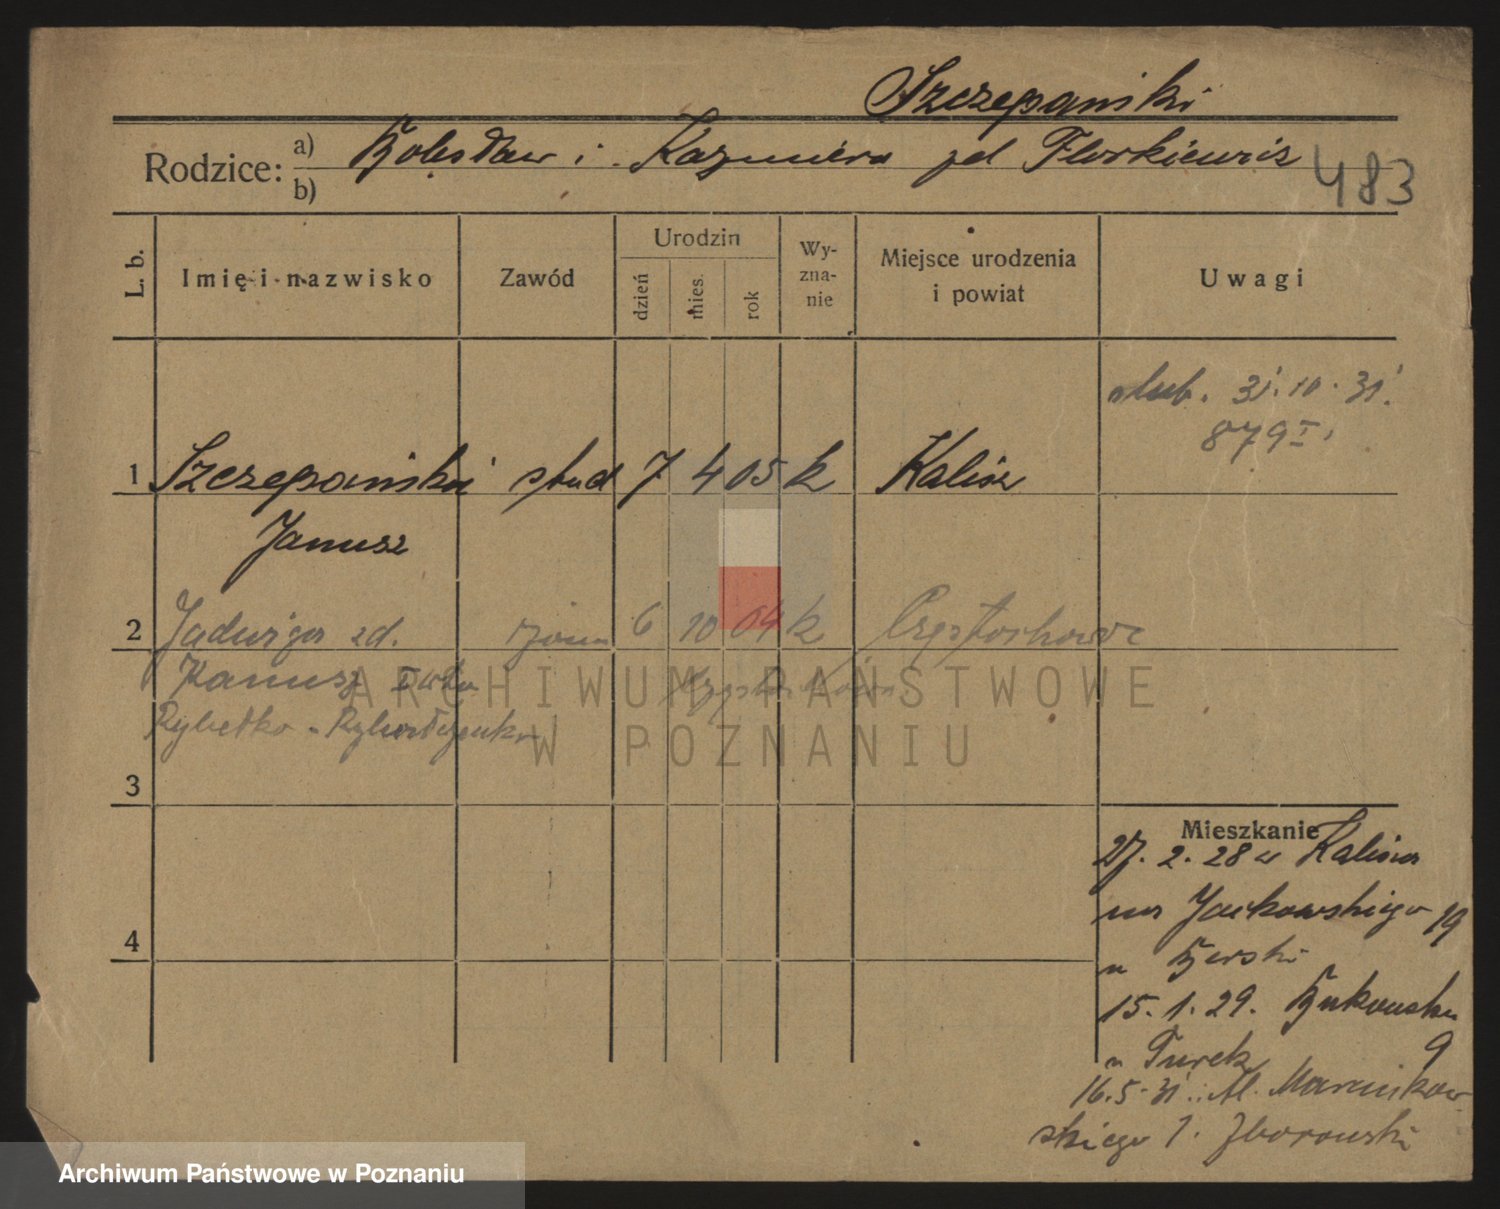 Szczepański
Rodzice: a) Bolesław i Kazimiera zd Florkiewicz
b)
483
L. b.
Imię i nazwisko
Zawód
Urodzin
dzień
mies.
rok
Wy-
zna-
nie
Miejsce urodzenia
i powiat
Uwagi
ślub. 31.10.31.
879 I
1 Szczepański stud 7 4 05 k Kalisz
Janusz
2 Jadwiga zd. żona 6 10 04 k Częstochowa
Janusz
Rybetko -
3
4
Mieszkanie
27. 2. 28 z Kalisza
na Jackowskiego 19
u Berski
15. 1. 29. Bukowska
u Turek 9
16.5.31. Al. Marcinkow
skiego 1. Zborowski
ARCHIWUM PAŃSTWOWE
W POZNANIU
Archiwum Państwowe w Poznaniu